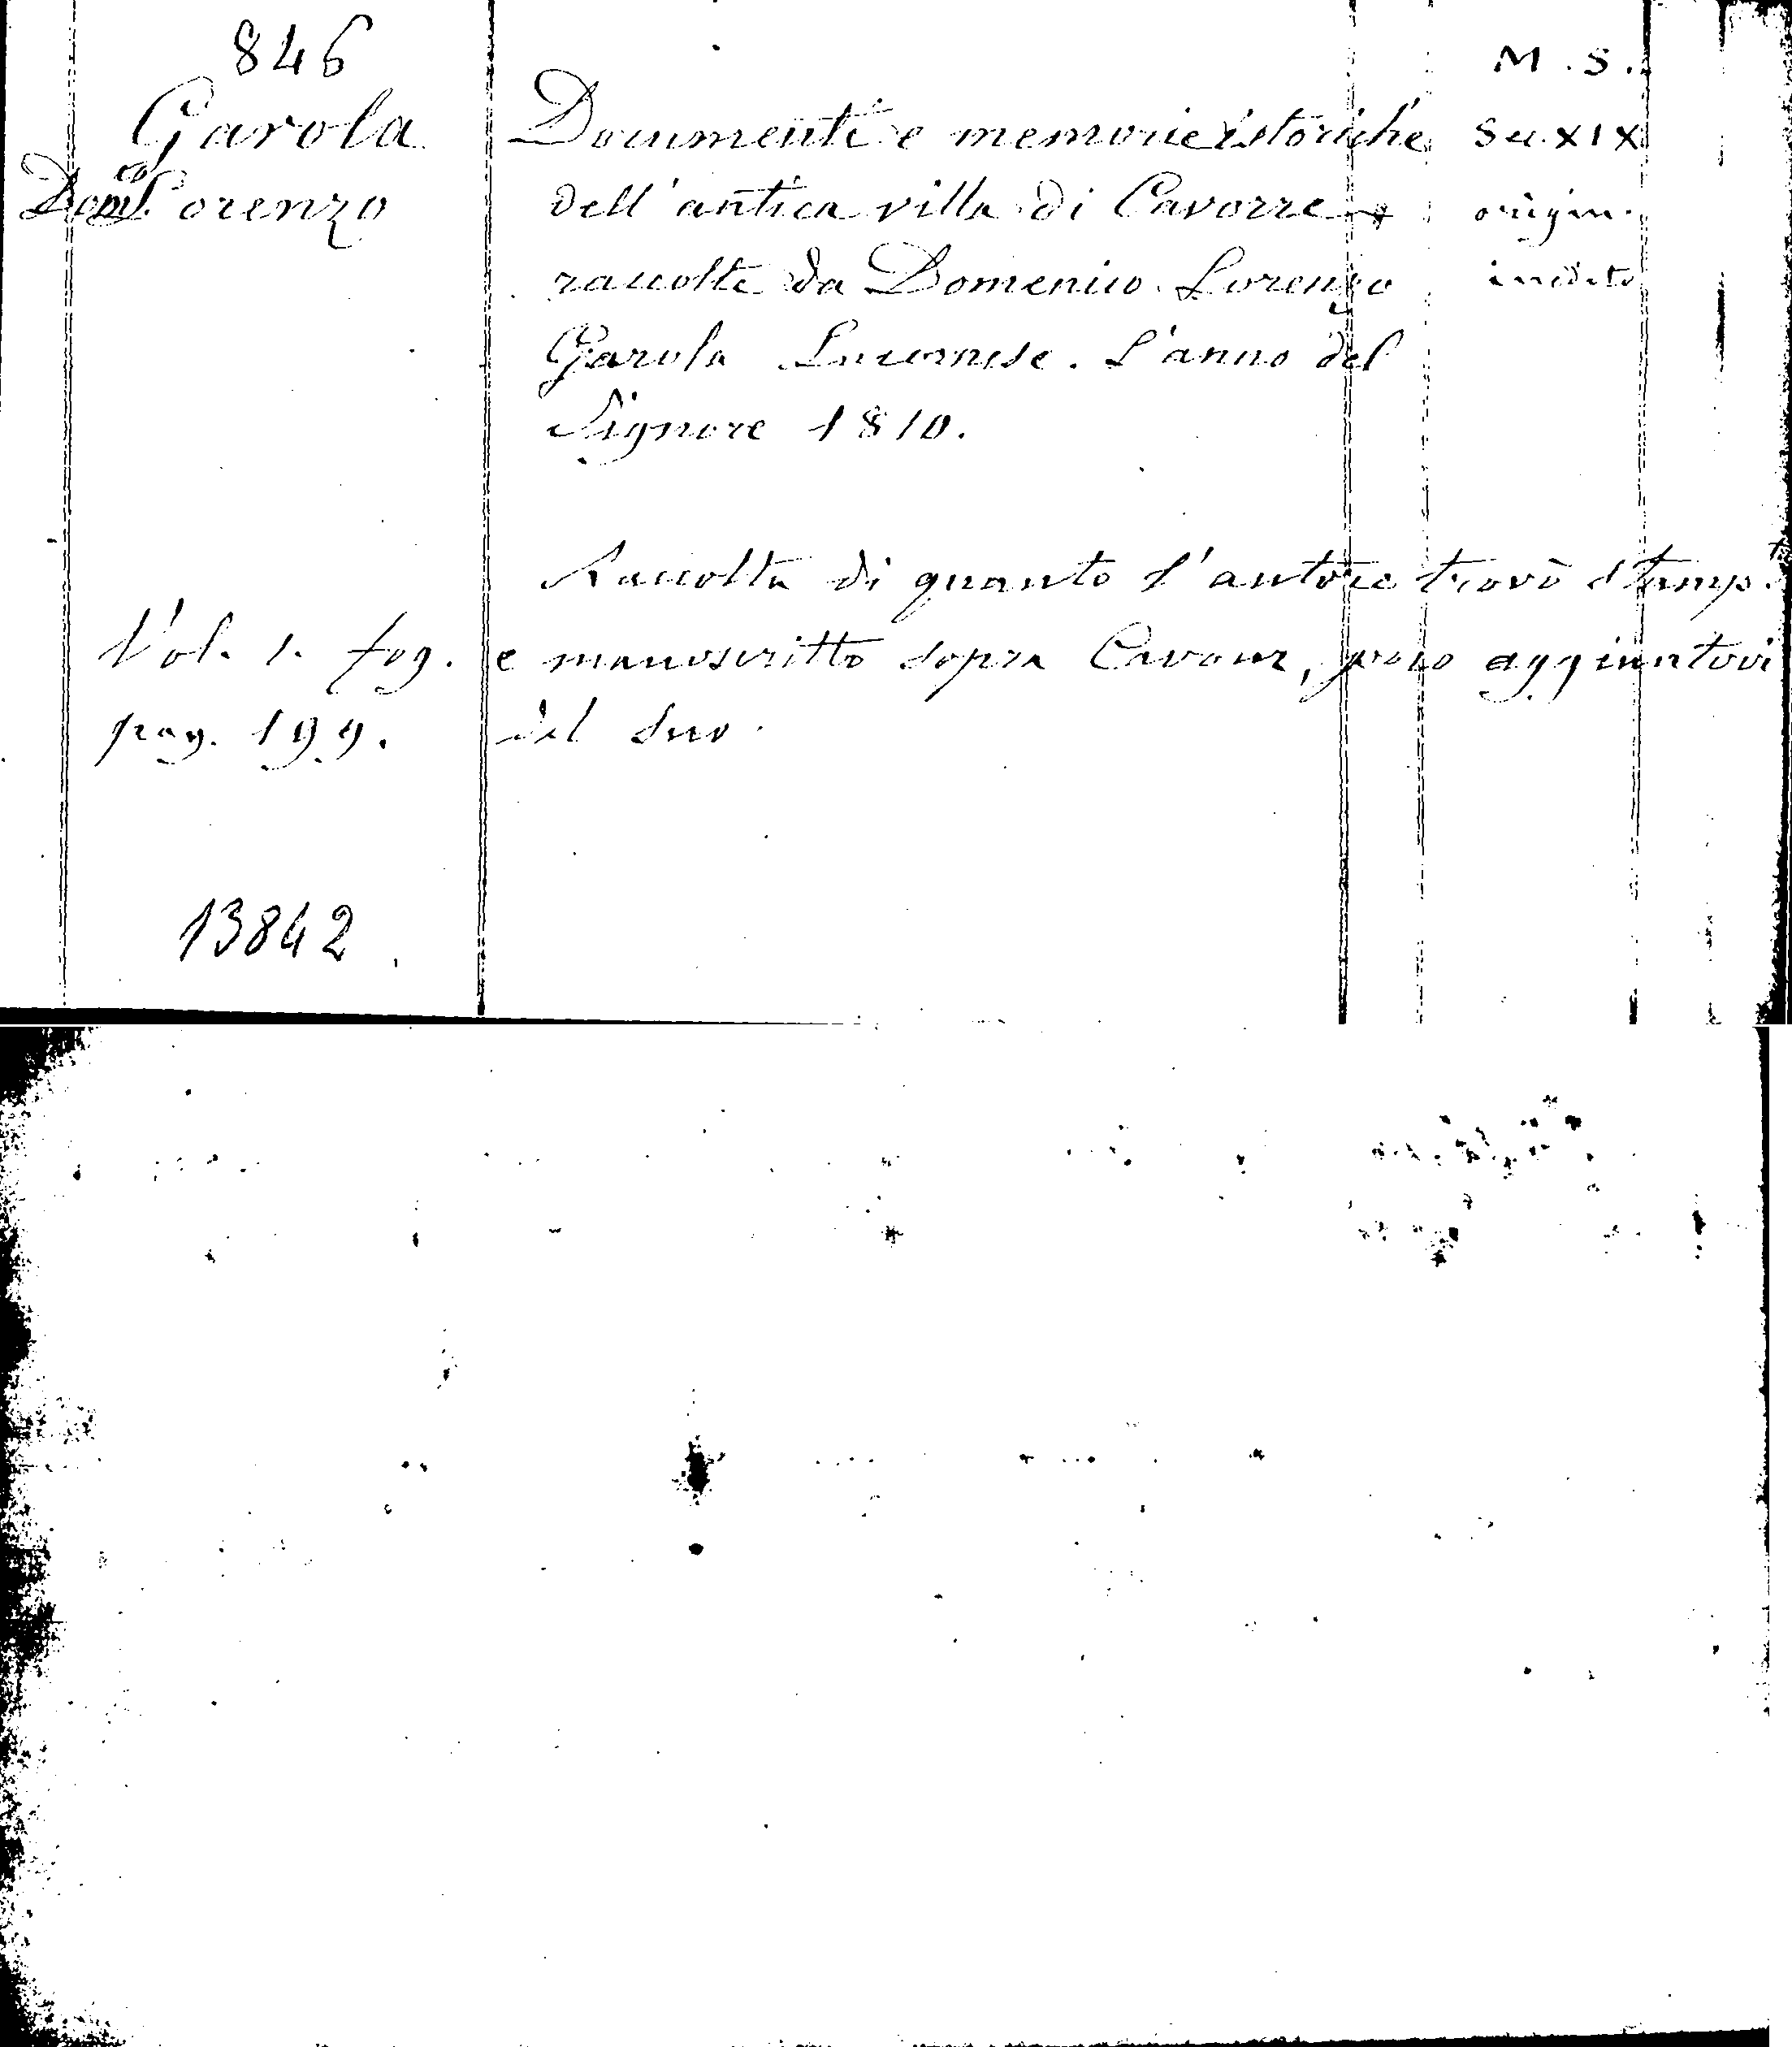 846
M.S.
Garola
Dom.co Lorenzo
Documenti e memorie istoriche
dell'antica villa di Cavorre
raccolte da Domenico Lorenzo
Garola Lucernese. L'anno del
Signore 1810.
Sec. XIX
origin.
inedito
Raccolta di quanto l'autore trovò stamp.to
e manoscritto sopra Cavour, poco aggiuntovi
del suo.
Vol. 1. fog.
pag. 199.
13842